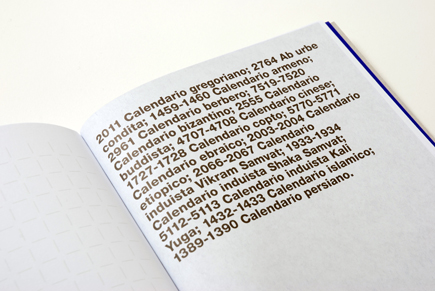 2011 Calendario gregoriano; 2764 Ab urbe
condita; 1459-1460 Calendario armeno;
2961 Calendario berbero; 7519-7520
Calendario bizantino; 2555 Calendario
buddista; 4707-4708 Calendario cinese;
1727-1728 Calendario copto; 5770-5771
Calendario ebraico; 2003-2004 Calendario
etiopico; 2066-2067 Calendario
induista Vikram Samvat; 1933-1934
Calendario induista Shaka Samvat;
5112-5113 Calendario induista Kali
Yuga; 1432-1433 Calendario islamico;
1389-1390 Calendario persiano.